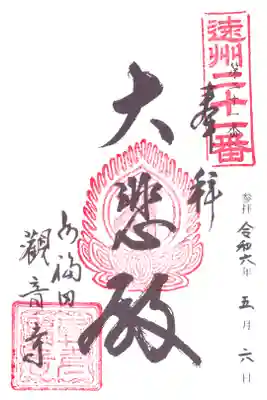 遠州二十二番
奉拝
参拝 令和六年 五月 六日
大悲殿
観音寺